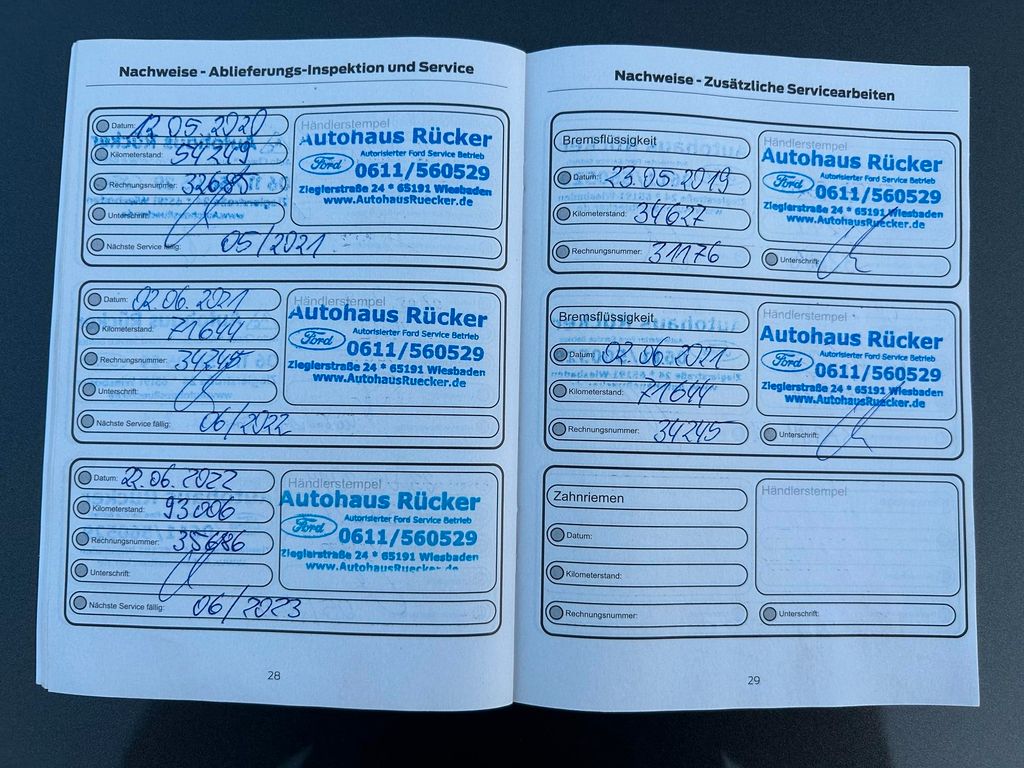 Nachweise - Ablieferungs-Inspektion und Service
Datum: 12.05.2020
Kilometerstand: 54249
Rechnungsnummer: 32685
Unterschrift:
Nächste Service fällig: 05/2021
Händlerstempel
Autohaus Rücker
Autorisierter Ford Service Betrieb
Ford 0611/560529
Zieglerstraße 24 * 65191 Wiesbaden
www.AutohausRuecker.de
Datum: 02.06.2021
Kilometerstand: 71644
Rechnungsnummer: 34245
Unterschrift:
Nächste Service fällig: 06/2022
Händlerstempel
Autohaus Rücker
Autorisierter Ford Service Betrieb
Ford 0611/560529
Zieglerstraße 24 * 65191 Wiesbaden
www.AutohausRuecker.de
Datum: 22.06.2022
Kilometerstand: 93006
Rechnungsnummer: 35686
Unterschrift:
Nächste Service fällig: 06/2023
Händlerstempel
Autohaus Rücker
Autorisierter Ford Service Betrieb
Ford 0611/560529
Zieglerstraße 24 * 65191 Wiesbaden
www.AutohausRuecker.de
28
Nachweise - Zusätzliche Servicearbeiten
Bremsflüssigkeit
Datum: 23.05.2019
Kilometerstand: 34627
Rechnungsnummer: 31176
Händlerstempel
Autohaus Rücker
Autorisierter Ford Service Betrieb
Ford 0611/560529
Zieglerstraße 24 * 65191 Wiesbaden
www.AutohausRuecker.de
Unterschrift:
Bremsflüssigkeit
Datum: 02.06.2021
Kilometerstand: 71644
Rechnungsnummer: 34245
Händlerstempel
Autohaus Rücker
Autorisierter Ford Service Betrieb
Ford 0611/560529
Zieglerstraße 24 * 65191 Wiesbaden
www.AutohausRuecker.de
Unterschrift:
Zahnriemen
Datum:
Kilometerstand:
Rechnungsnummer:
Händlerstempel
Unterschrift:
29